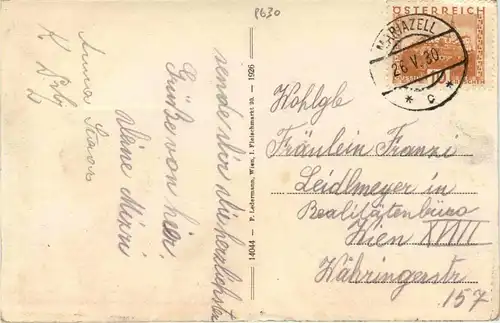 8630
sende dir die herzlichsten
Grüße von hier.
deine Mizzi
Anna
14044 — P. Ledermann, Wien, I. Fleischmarkt 20. — 1926
ÖSTERREICH
MARIAZELL
26.V.30
* c *
10
Wohlgb
Fräulein Franzi
Leidlmeyer in
Realitätenbüro
Wien XVIII
Währingerstr
157